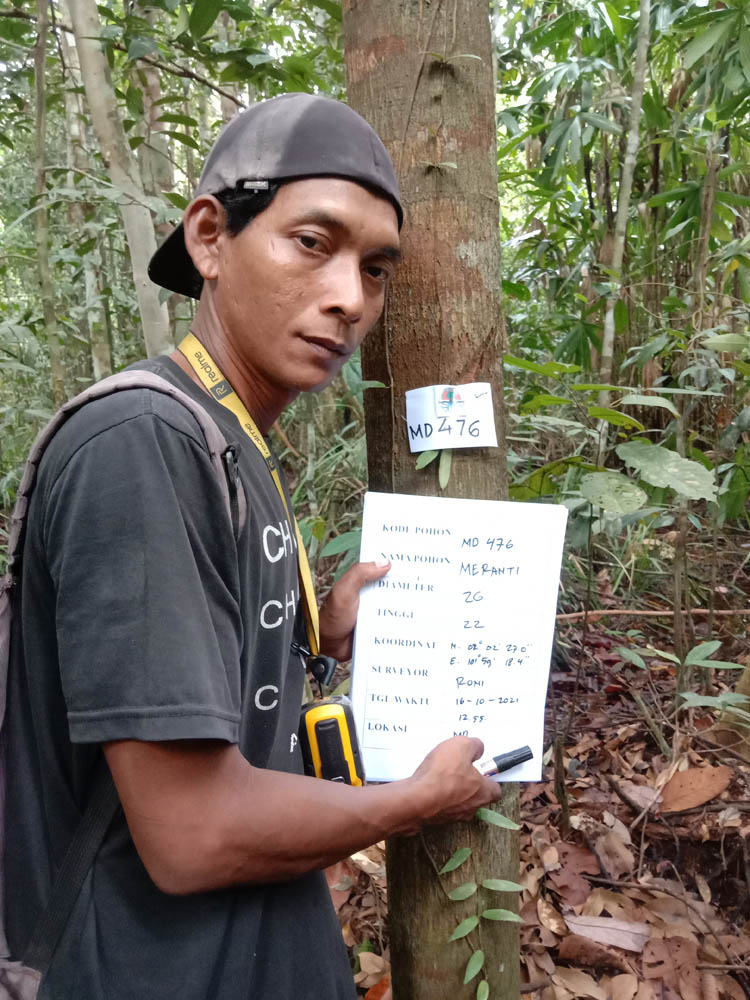 realme
realme
MD 476
KODE POHON MD 476
NAMA POHON MERANTI
DIAMETER 26
TINGGI 22
KOORDINAT N: 02° 02' 27.0"
E: 101° 59' 18.4"
SURVEYOR RONI
TGL WAKTU 16-10-2021
12.55
LOKASI MD
CH
CH
C
P